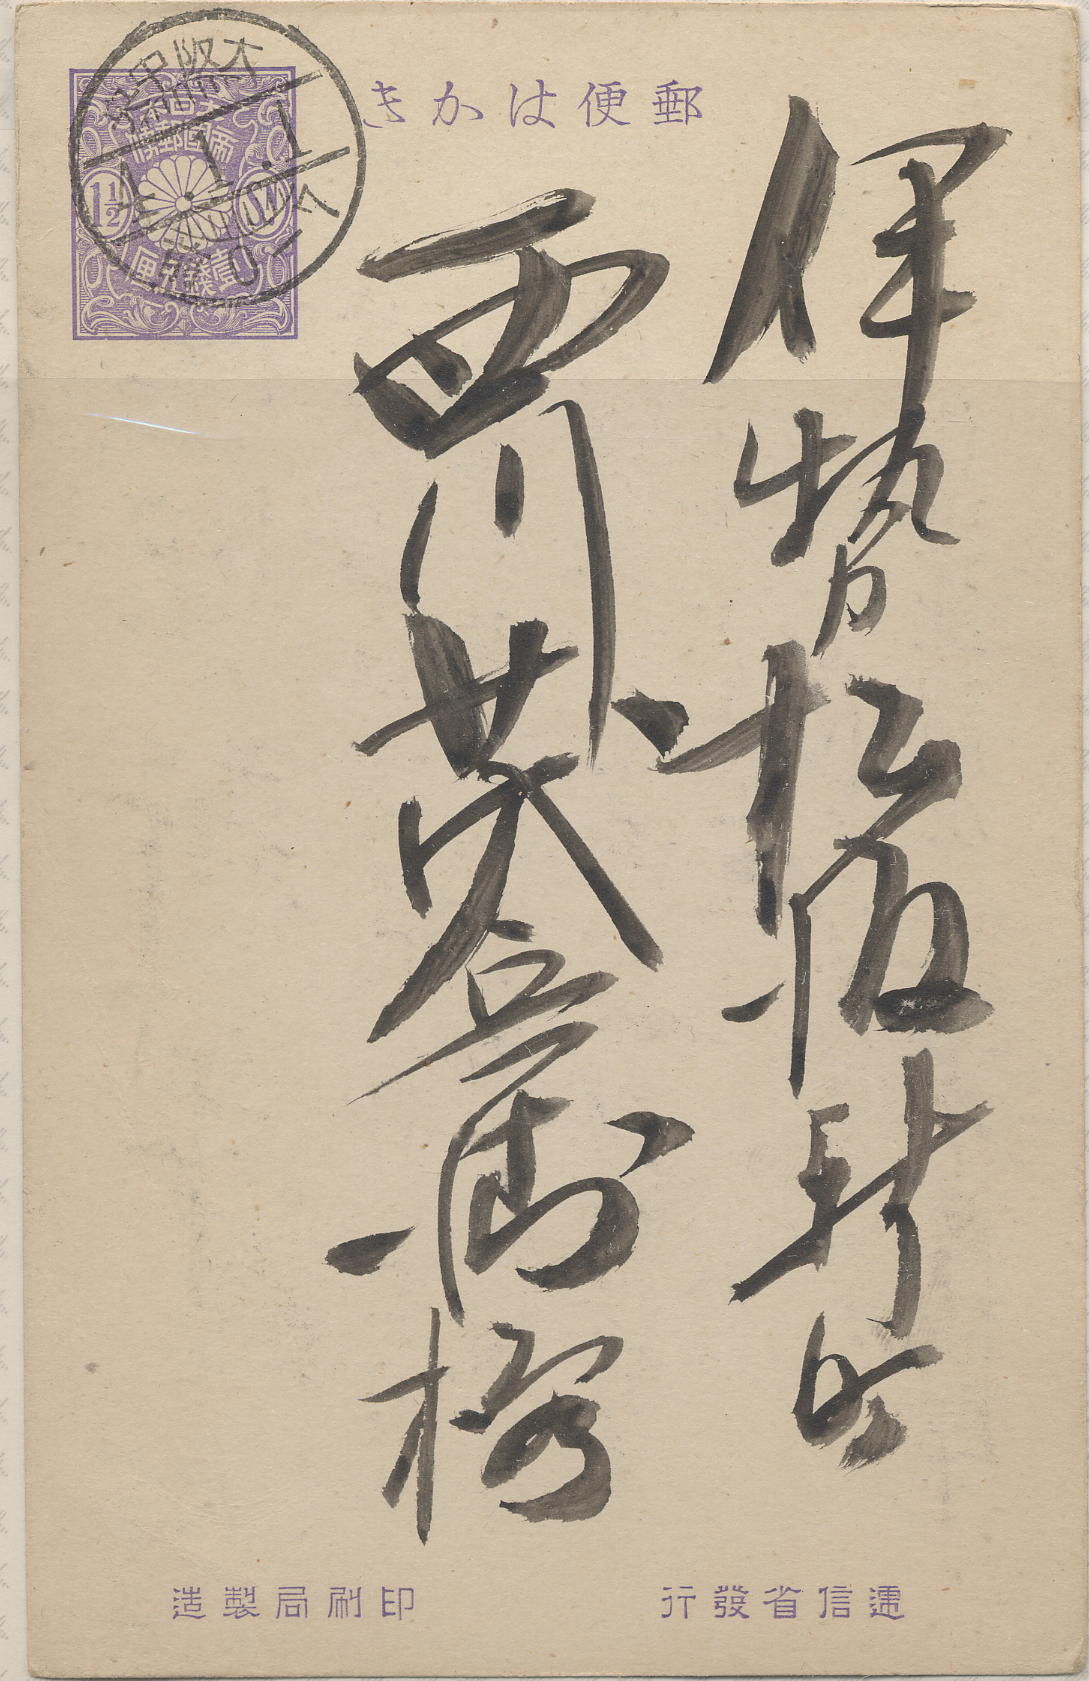 郵便はかき
大日本帝國郵便
1½
SN
壹錢五厘
大阪中央
伊勢松阪新町
西川茂兵衛様
遞信省發行
印刷局製造